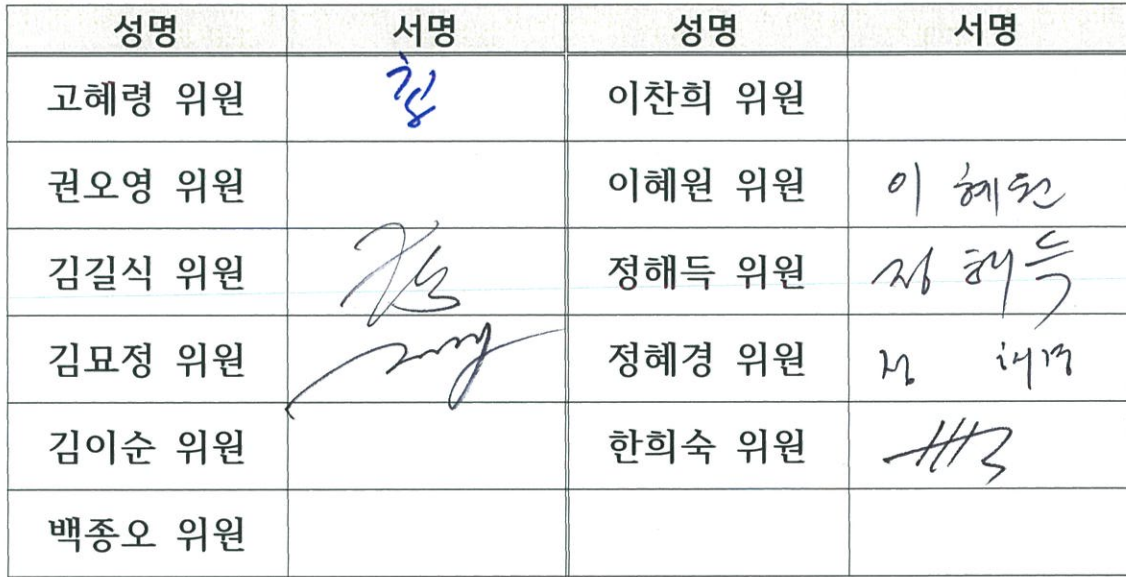 성명 서명 성명 서명
고혜령 위원 이찬희 위원
권오영 위원 이혜원 위원 이 혜원
김길식 위원 정해득 위원 정 해득
김묘정 위원 정혜경 위원
김이순 위원 한희숙 위원
백종오 위원